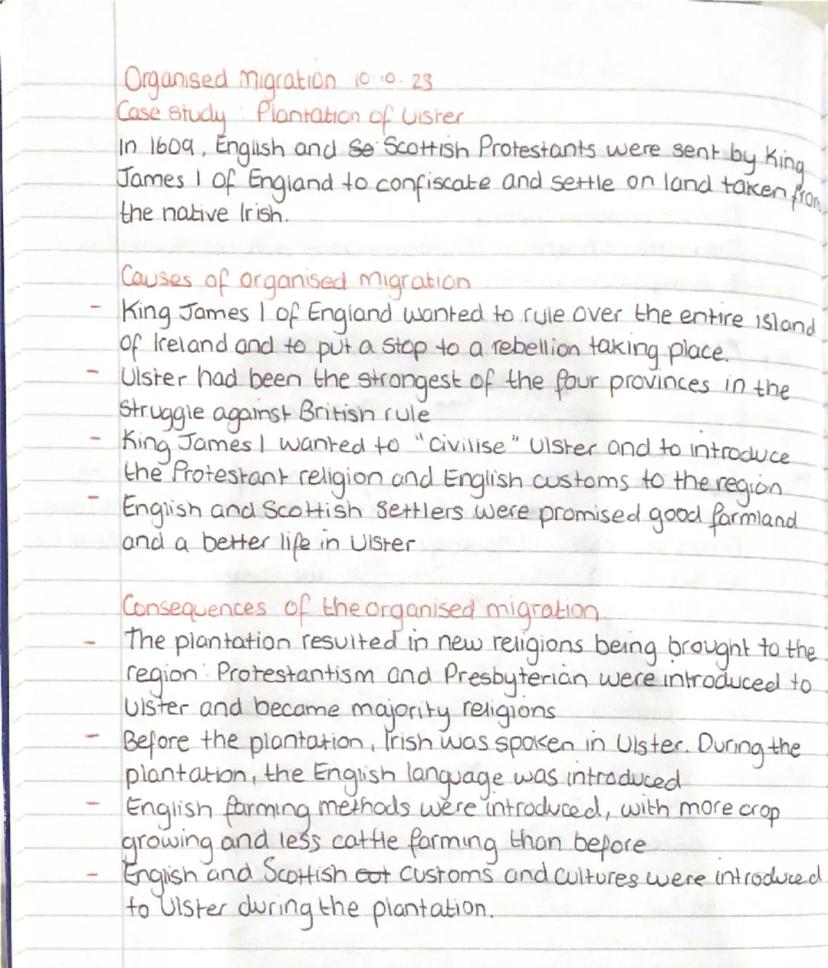 Organised Migration 10.10.23
Case study: Plantation of Ulster
In 1609, English and So Scottish Protestants were sent by King
James I of England to confiscate and settle on land taken from
the native Irish.
Causes of organised migration
- King James I of England wanted to rule over the entire island
of Ireland and to put a stop to a rebellion taking place.
- Ulster had been the strongest of the four provinces in the
struggle against British rule
- King James I wanted to "civilise" Ulster and to introduce
the Protestant religion and English customs to the region
- English and Scottish settlers were promised good farmland
and a better life in Ulster
Consequences of the organised migration
- The plantation resulted in new religions being brought to the
region: Protestantism and Presbyterian were introduced to
Ulster and became majority religions
- Before the plantation, Irish was spoken in Ulster. During the
plantation, the English language was introduced
- English farming methods were introduced, with more crop
growing and less cattle farming than before
- English and Scottish cut customs and cultures were introduced
to Ulster during the plantation.